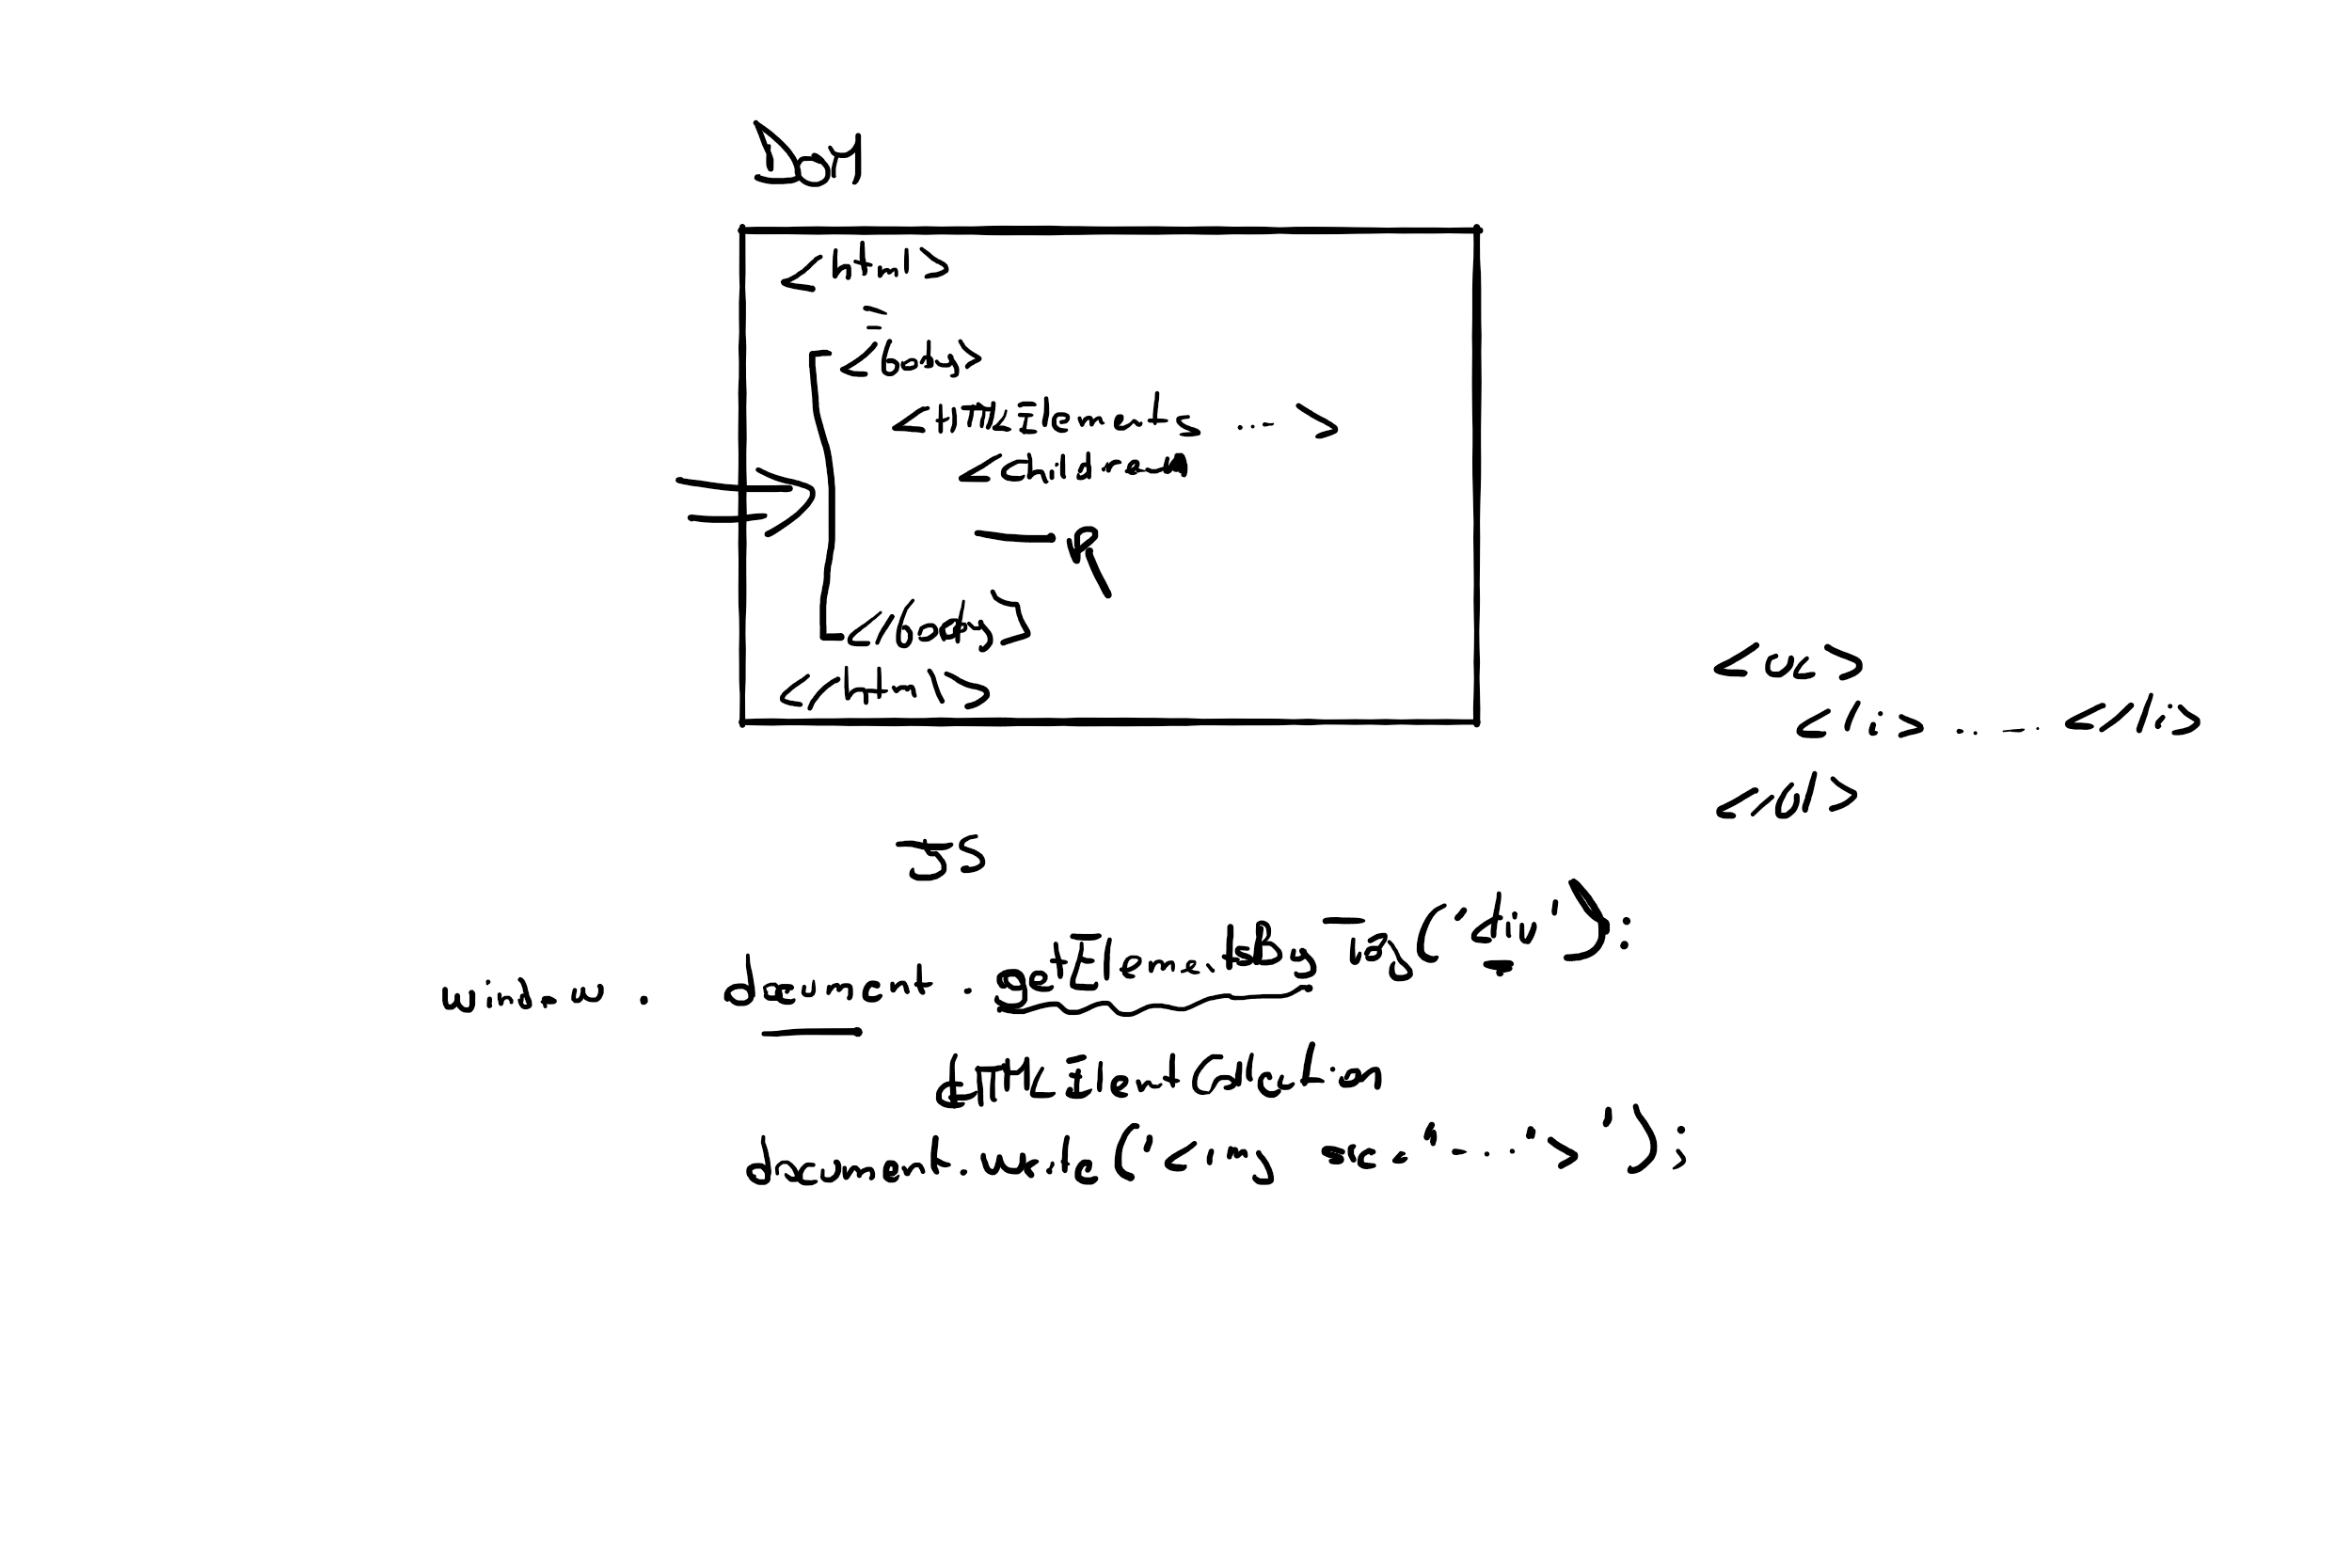 DOM
<html>
<body>
<HTMLElements ... >
<children
</body>
</html>
<ul>
<li> ..-. </li>
</ul>
JS
window . document . getElementsByTag('div');
HTMLElementCollection
document.write('<img src="..."> ');